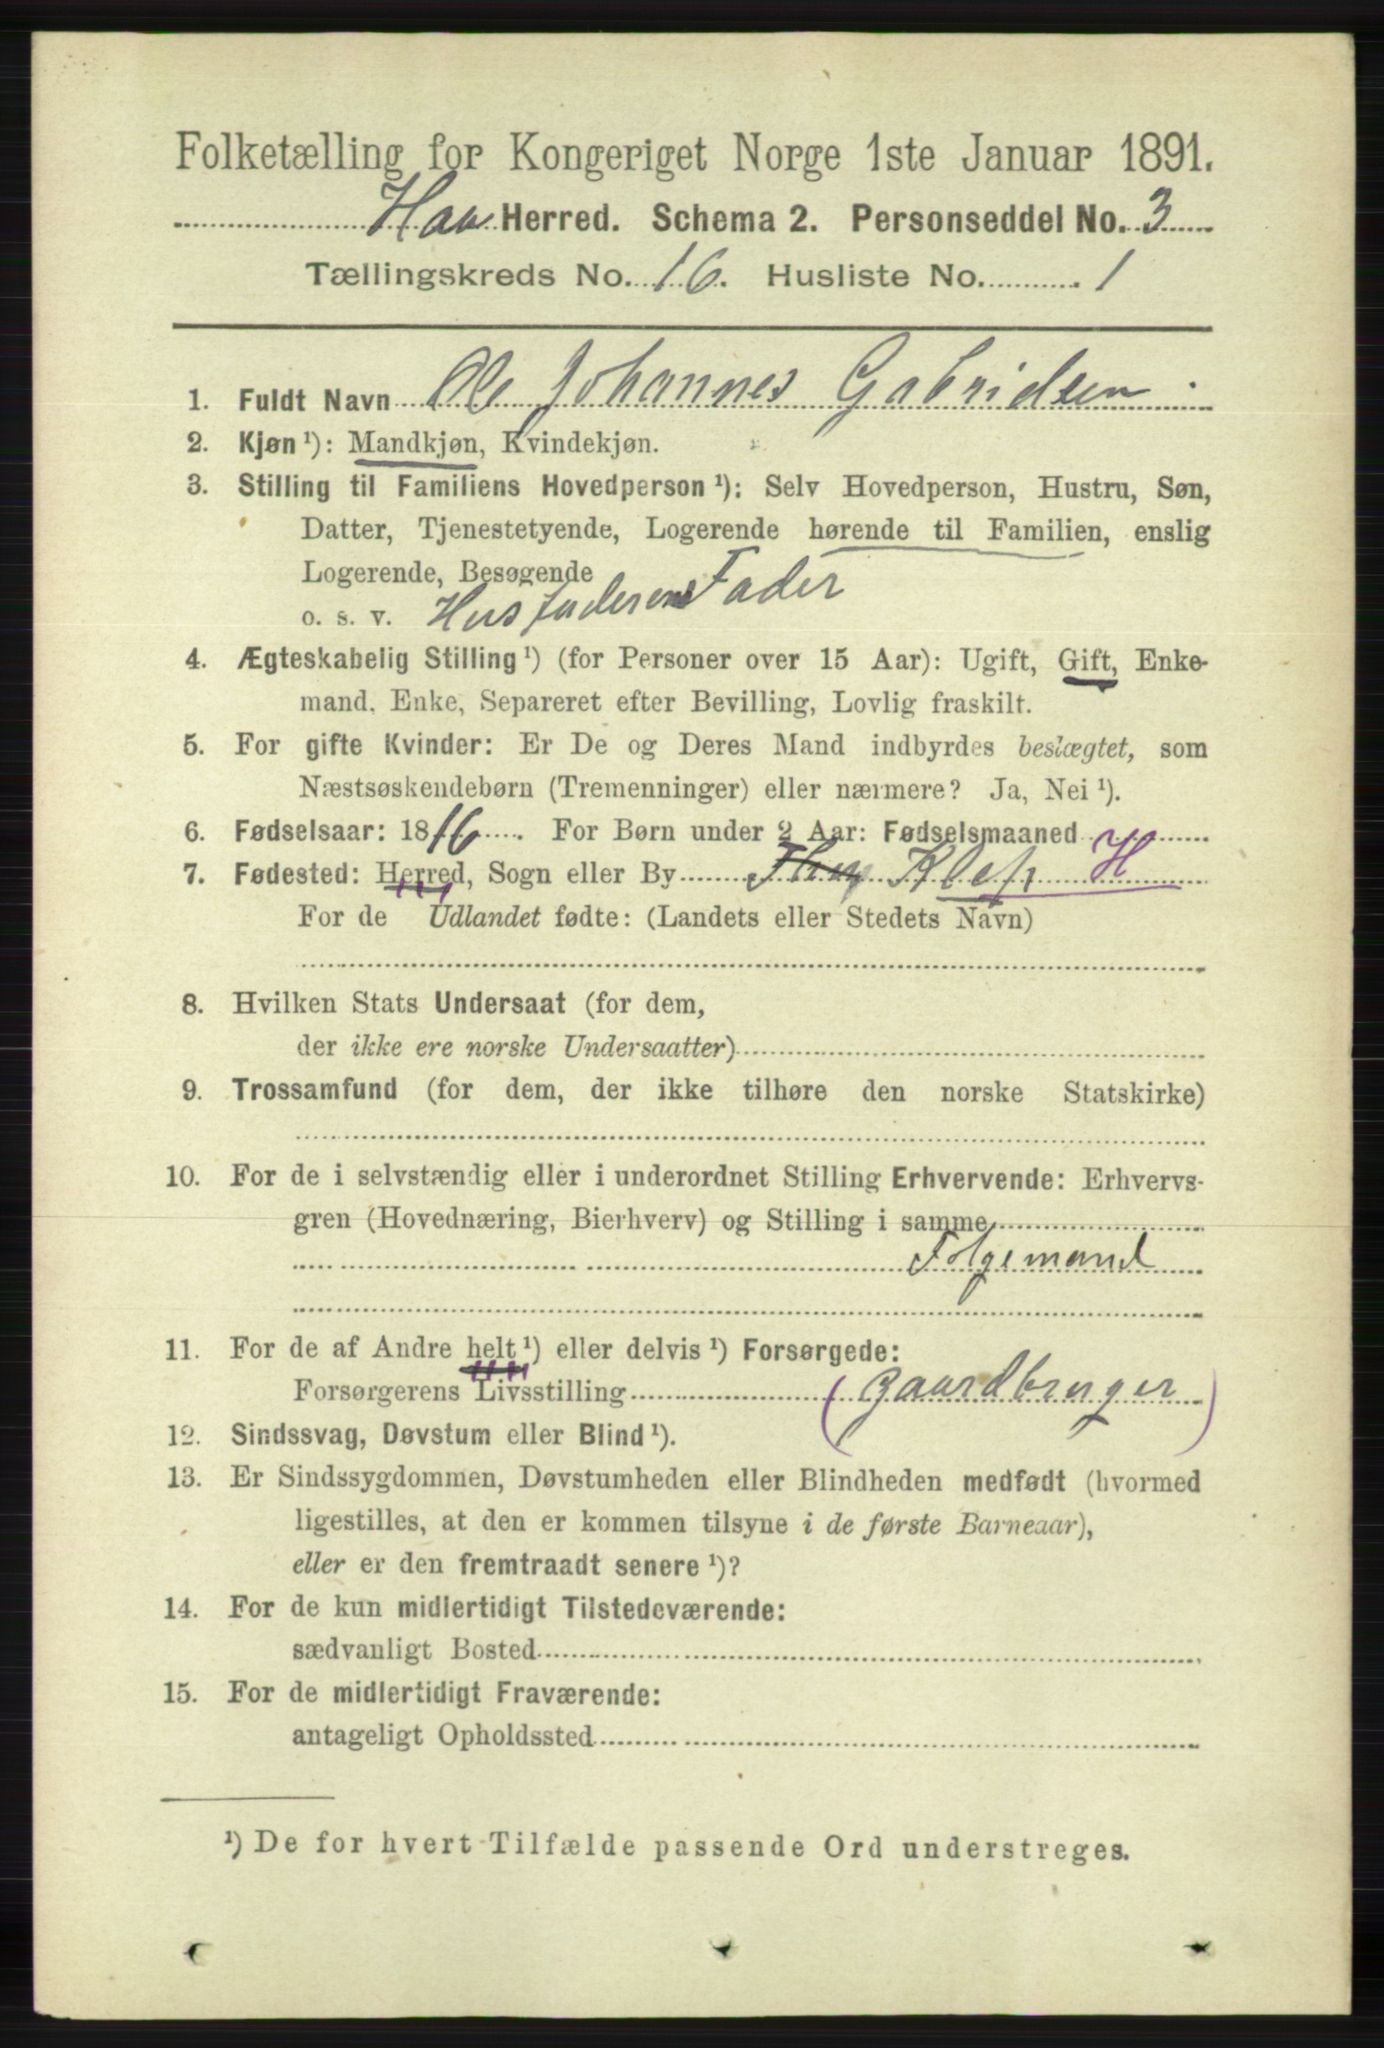 Folketælling for Kongeriget Norge 1ste Januar 1891.
Haa Herred. Schema 2. Personseddel No. 3
Tællingskreds No. 16. Husliste No. 1
1. Fuldt Navn Ole Johannes Gabrielsen
2. Kjøn ¹): Mandkjøn, Kvindekjøn.
3. Stilling til Familiens Hovedperson ¹): Selv Hovedperson, Hustru, Søn,
Datter, Tjenestetyende, Logerende hørende til Familien, enslig
Logerende, Besøgende
o. s. v. Husfaderens Fader
4. Ægteskabelig Stilling ¹) (for Personer over 15 Aar): Ugift, Gift, Enke-
mand, Enke, Separeret efter Bevilling, Lovlig fraskilt.
5. For gifte Kvinder: Er De og Deres Mand indbyrdes beslægtet, som
Næstsøskendebørn (Tremenninger) eller nærmere? Ja, Nei ¹).
6. Fødselsaar: 1816. For Børn under 2 Aar: Fødselsmaaned
7. Fødested: Herred, Sogn eller By Klep H
For de Udlandet fødte: (Landets eller Stedets Navn)
8. Hvilken Stats Undersaat (for dem,
der ikke ere norske Undersaatter)
9. Trossamfund (for dem, der ikke tilhøre den norske Statskirke)
10. For de i selvstændig eller i underordnet Stilling Erhvervende: Erhvervs-
gren (Hovednæring, Bierhverv) og Stilling i samme
Folgemand
11. For de af Andre helt ¹) eller delvis ¹) Forsørgede:
Forsørgerens Livsstilling (Gaardbruger)
12. Sindssvag, Døvstum eller Blind ¹).
13. Er Sindssygdommen, Døvstumheden eller Blindheden medfødt (hvormed
ligestilles, at den er kommen tilsyne i de første Barneaar),
eller er den fremtraadt senere ¹)?
14. For de kun midlertidigt Tilstedeværende:
sædvanligt Bosted
15. For de midlertidigt Fraværende:
antageligt Opholdssted
¹) De for hvert Tilfælde passende Ord understreges.